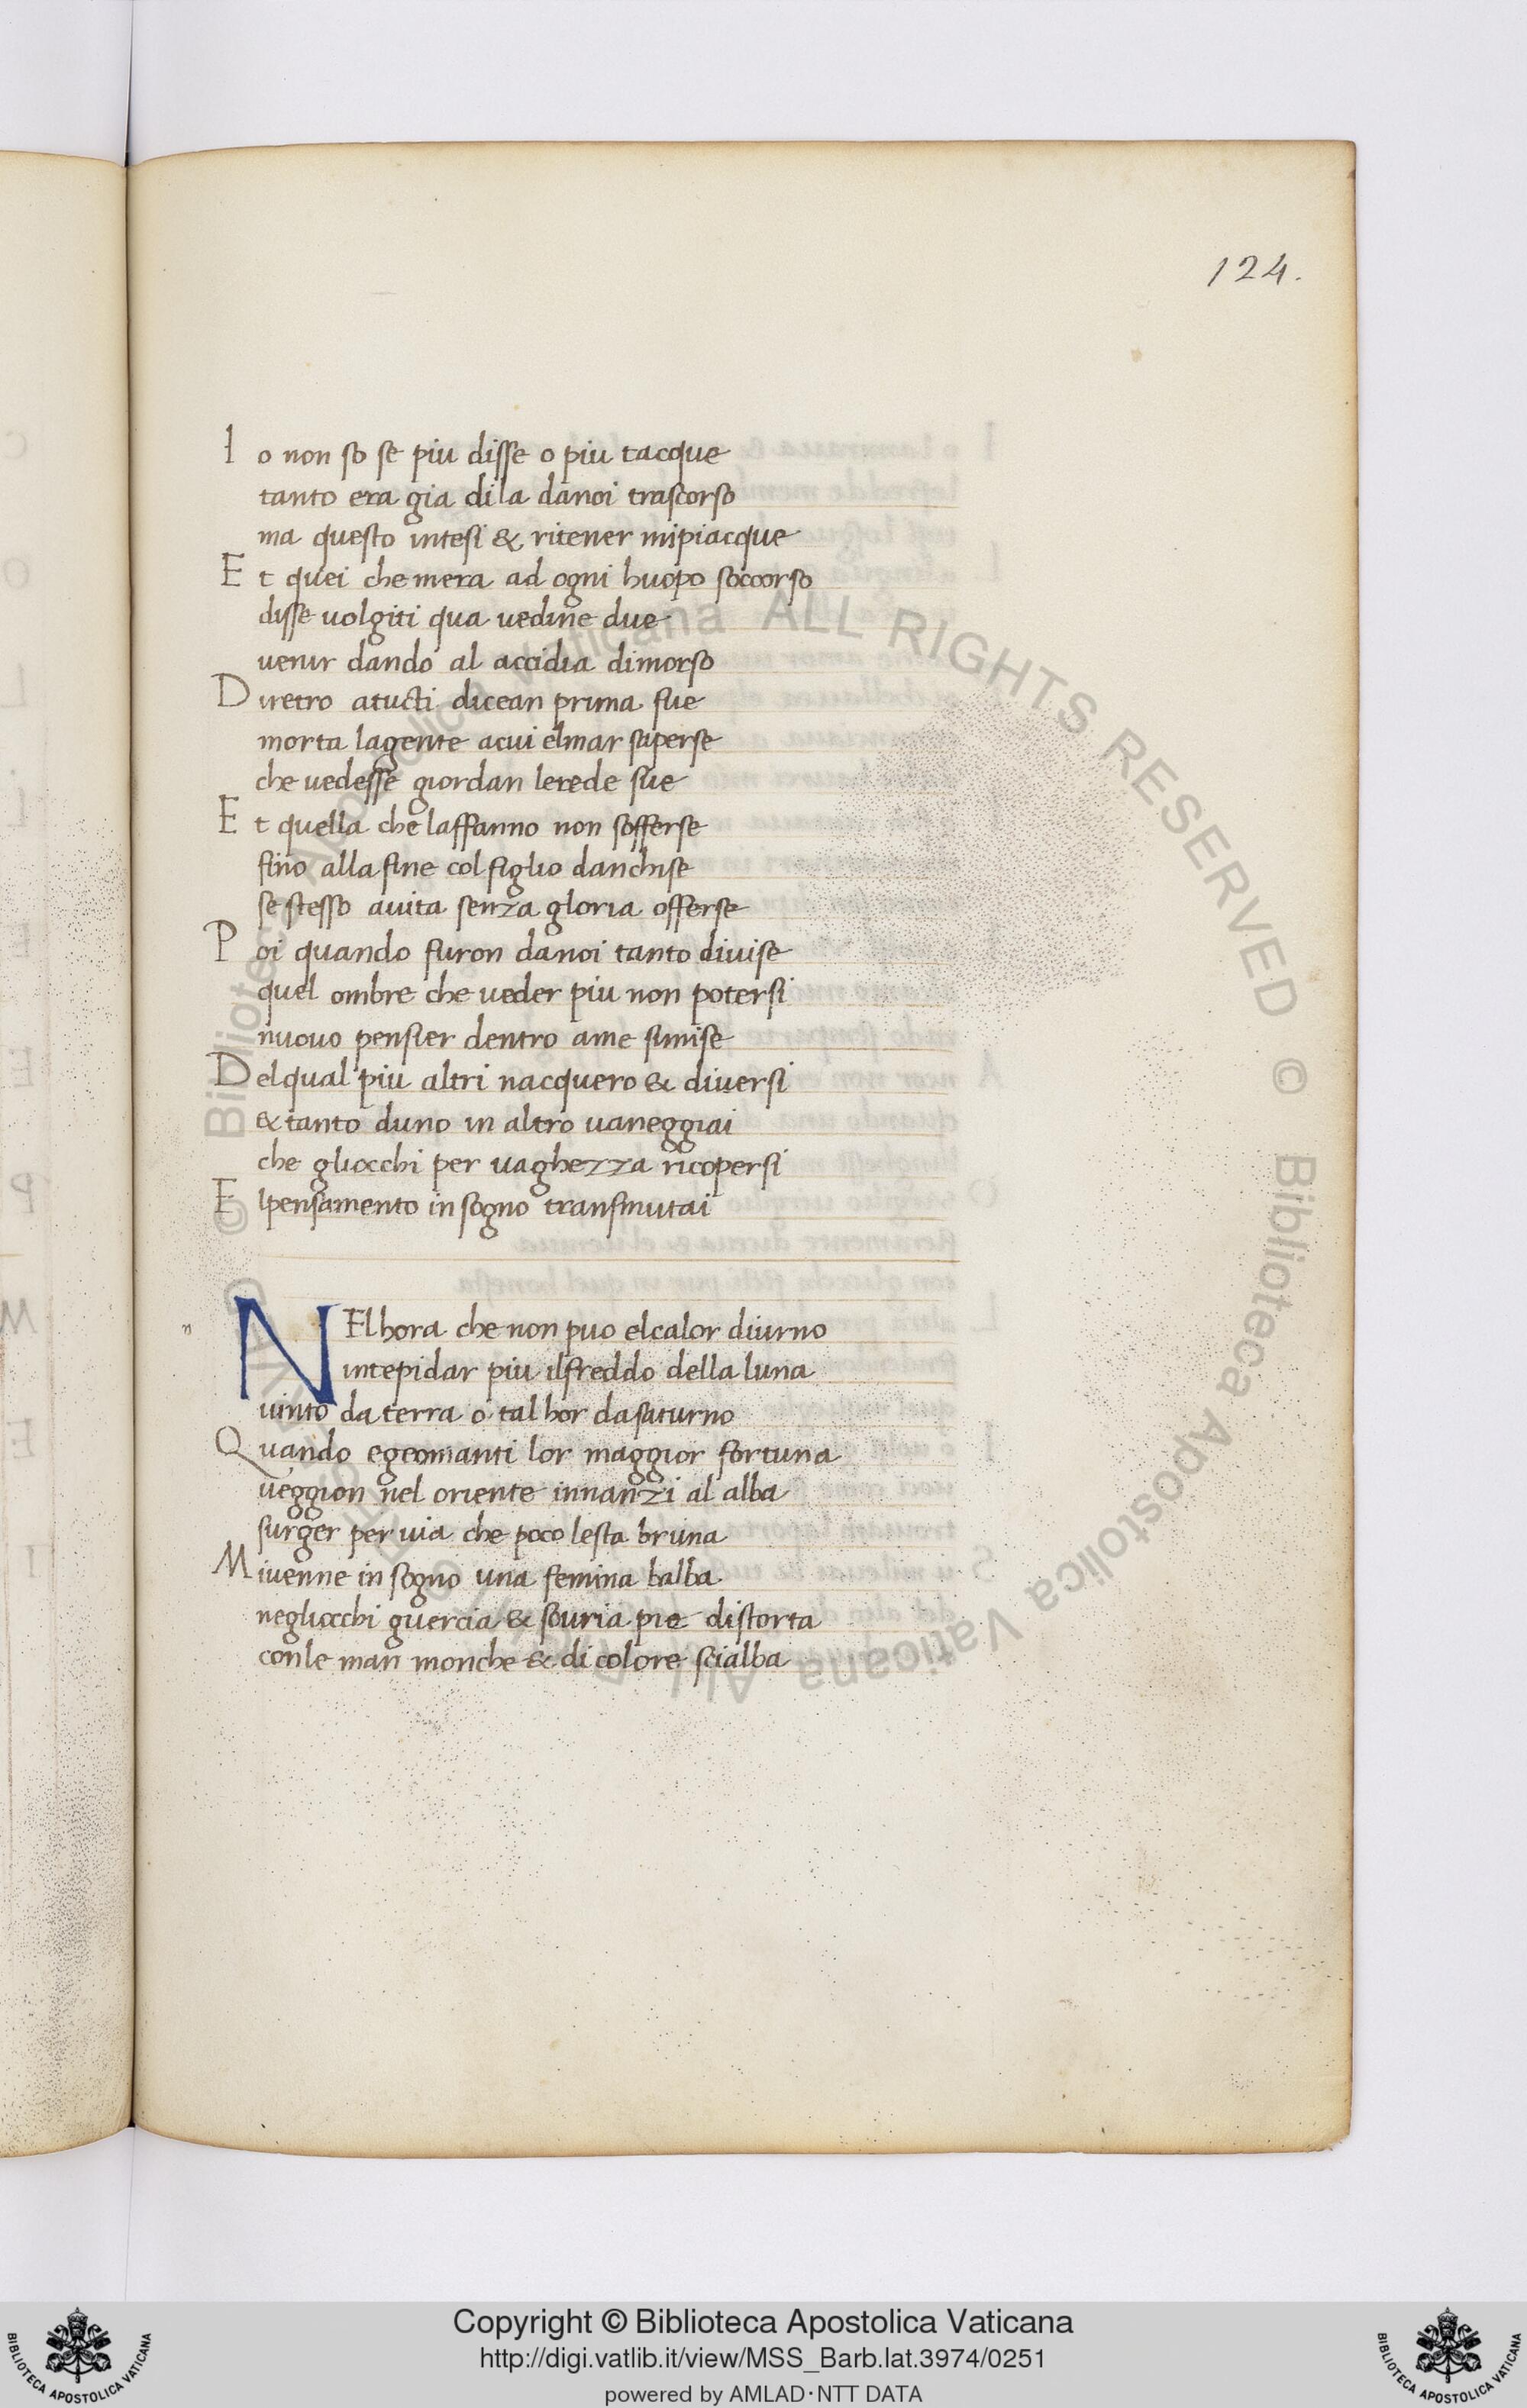 124.
Io non so se piu disse o piu tacque
tanto era gia dila danoi trascorso
ma questo intesi & ritener mipiacque
Et quei che mera ad ogni huopo soccorso
disse uolgiti qua vedine due
uenir dando al accidia dimorso
Diretro atucti dicean prima fue
morta lagente acui elmar saperse
che vedesse giordan lerede sue
Et quella che laffanno non sofferse
fino alla fine col figlio danchise
se stesso auita senza gloria offerse
Poi quando furon danoi tanto divise
quel ombre che veder piu non potersi
nuouo pensier dentro ame simise
Delqual piu altri nacquero & diversi
& tanto duno in altro vaneggiai
che gliocchi per vaghezza ricopersi
El pensamento in sogno transmutai
n
NEl hora che non puo elcalor diurno
intepidar piu ilfreddo della luna
uinto da terra o tal hor dasaturno
Quando egeomanti lor maggior fortuna
ueggion nel oriente innanzi al alba
surger per uia che poco lesta bruna
Miuenne in sogno una femina balba
negliocchi guercia & souria pie distorta
conle man monche & di colore scialba
© Biblioteca Apostolica Vaticana ALL RIGHTS RESERVED © Biblioteca Apostolica Vaticana ALL RIGHTS RESERVED
Copyright © Biblioteca Apostolica Vaticana
http://digi.vatlib.it/view/MSS_Barb.lat.3974/0251
powered by AMLAD·NTT DATA
BIBLIOTECA APOSTOLICA VATICANA
BIBLIOTECA APOSTOLICA VATICANA